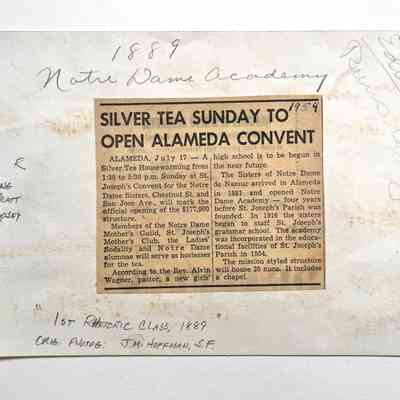 1889
Notre Dame Academy
1959
SILVER TEA SUNDAY TO
OPEN ALAMEDA CONVENT
ALAMEDA, July 17 — A
Silver Tea Housewarming from
1:30 to 5:30 p.m. Sunday at St.
Joseph's Convent for the Notre
Dame Sisters, Chestnut St. and
San Jose Ave., will mark the
official opening of the $177,900
structure.
Members of the Notre Dame
Mother's Guild, St. Joseph's
Mother's Club, the Ladies'
Sodality and Notre Dame
alumnae will serve as hostesses
for the tea.
According to the Rev. Alvin
Wagner, pastor, a new girls'
high school is to be begun in
the near future.
The Sisters of Notre Dame
de Namur arrived in Alameda
in 1881 and opened Notre
Dame Academy — four years
before St. Joseph's Parish was
founded. In 1916 the sisters
began to staff St. Joseph's
grammar school. The academy
was incorporated in the educa-
tional facilities of St. Joseph's
Parish in 1954.
The mission styled structure
will house 20 nuns. It includes
a chapel.
R
1ST RHETORIC CLASS, 1889
ORIG. PHOTOG. J.M. HOFFMAN, S.F.